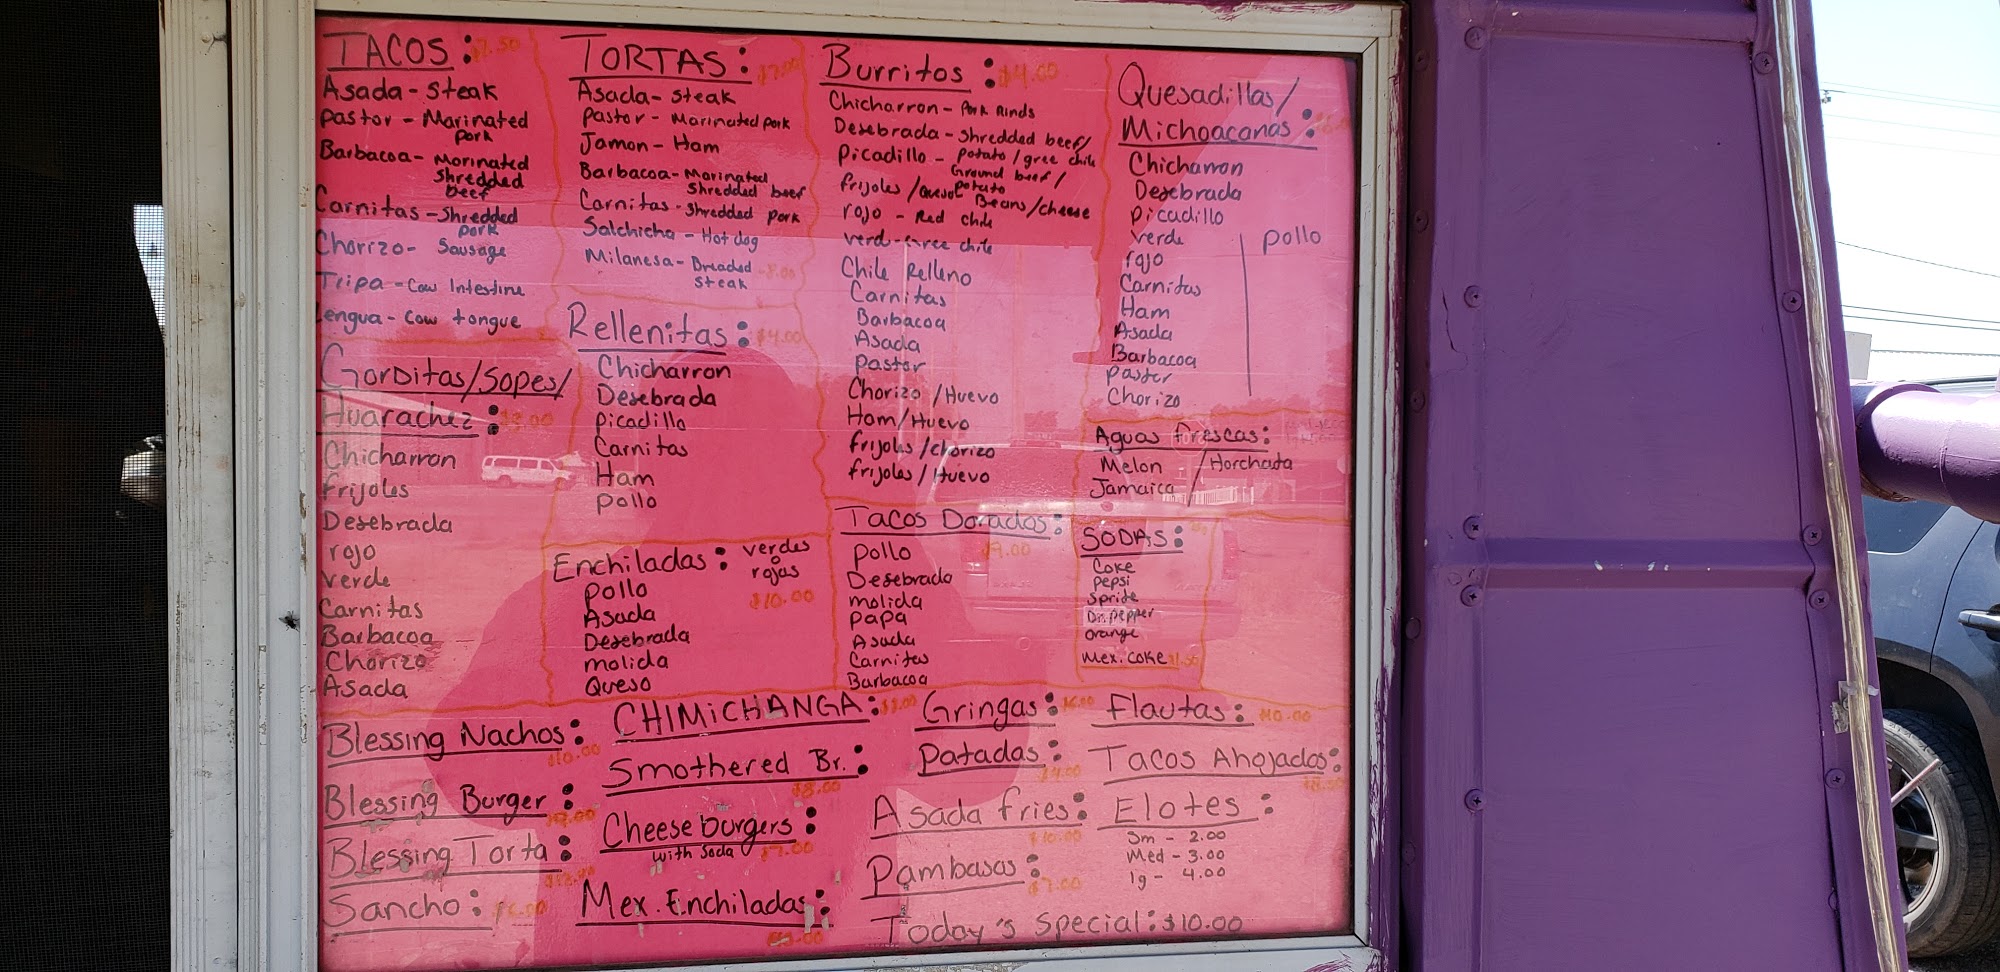 TACOS:
Asada - Steak
Pastor - Marinated
Pork
Barbacoa - Marinated
Shredded
beef
Carnitas - Shredded
pork
Chorizo - Sausage
Tripa - Cow Intestine
Lengua - Cow tongue
Gorditas/Sopes/
Huarachez:
Chicharron
frijoles
Desebrada
rojo
verde
Carnitas
Barbacoa
Chorizo
Asada
TORTAS: $7.00
Asada - Steak
Pastor - Marinated pork
Jamon - Ham
Barbacoa - Marinated
Shredded beef
Carnitas - Shredded pork
Salchicha - Hot dog
Milanesa - Breaded 8.00
Steak
Rellenitas: $4.00
Chicharron
Desebrada
Picadillo
Carnitas
Ham
Pollo
Enchiladas: verdes
o
rojas
$10.00
Pollo
Asada
Desebrada
molida
Queso
Burritos: $4.00
Chicharron - Pork Rinds
Desebrada - Shredded beef/
Potato/gree chile
Picadillo - Ground beef/
Potato
frijoles/Queso - Beans/cheese
rojo - Red chile
verd - Gree chile
Chile Relleno
Carnitas
Barbacoa
Asada
Pastor
Chorizo/Huevo
Ham/Huevo
frijoles/chorizo
frijoles/Huevo
Tacos Dorados:
$9.00
Pollo
Desebrada
molida
papa
Asada
Carnitas
Barbacoa
Quesadillas/
Michoacanas:
Chicharron
Desebrada
Picadillo
verde
rojo
Carnitas
Ham
Asada
Barbacoa
Pastor
Chorizo
Pollo
Aguas frescas:
Melon / Horchata
Jamaica
SODAS:
Coke
Pepsi
Spride
Dr. pepper
orange
Mex. coke
Blessing Nachos:
$10.00
Blessing Burger:
Blessing Torta:
Sancho:
CHIMICHANGA:
Smothered Br.:
$8.00
Cheeseburgers:
with Soda $7.00
Mex. Enchiladas:
Gringas:
Patadas:
Asada fries:
$10.00
Pambasos:
$7.00
Flautas: $10.00
Tacos Ahojados:
Elotes:
Sm - 2.00
Med - 3.00
lg - 4.00
Today's Special: $10.00